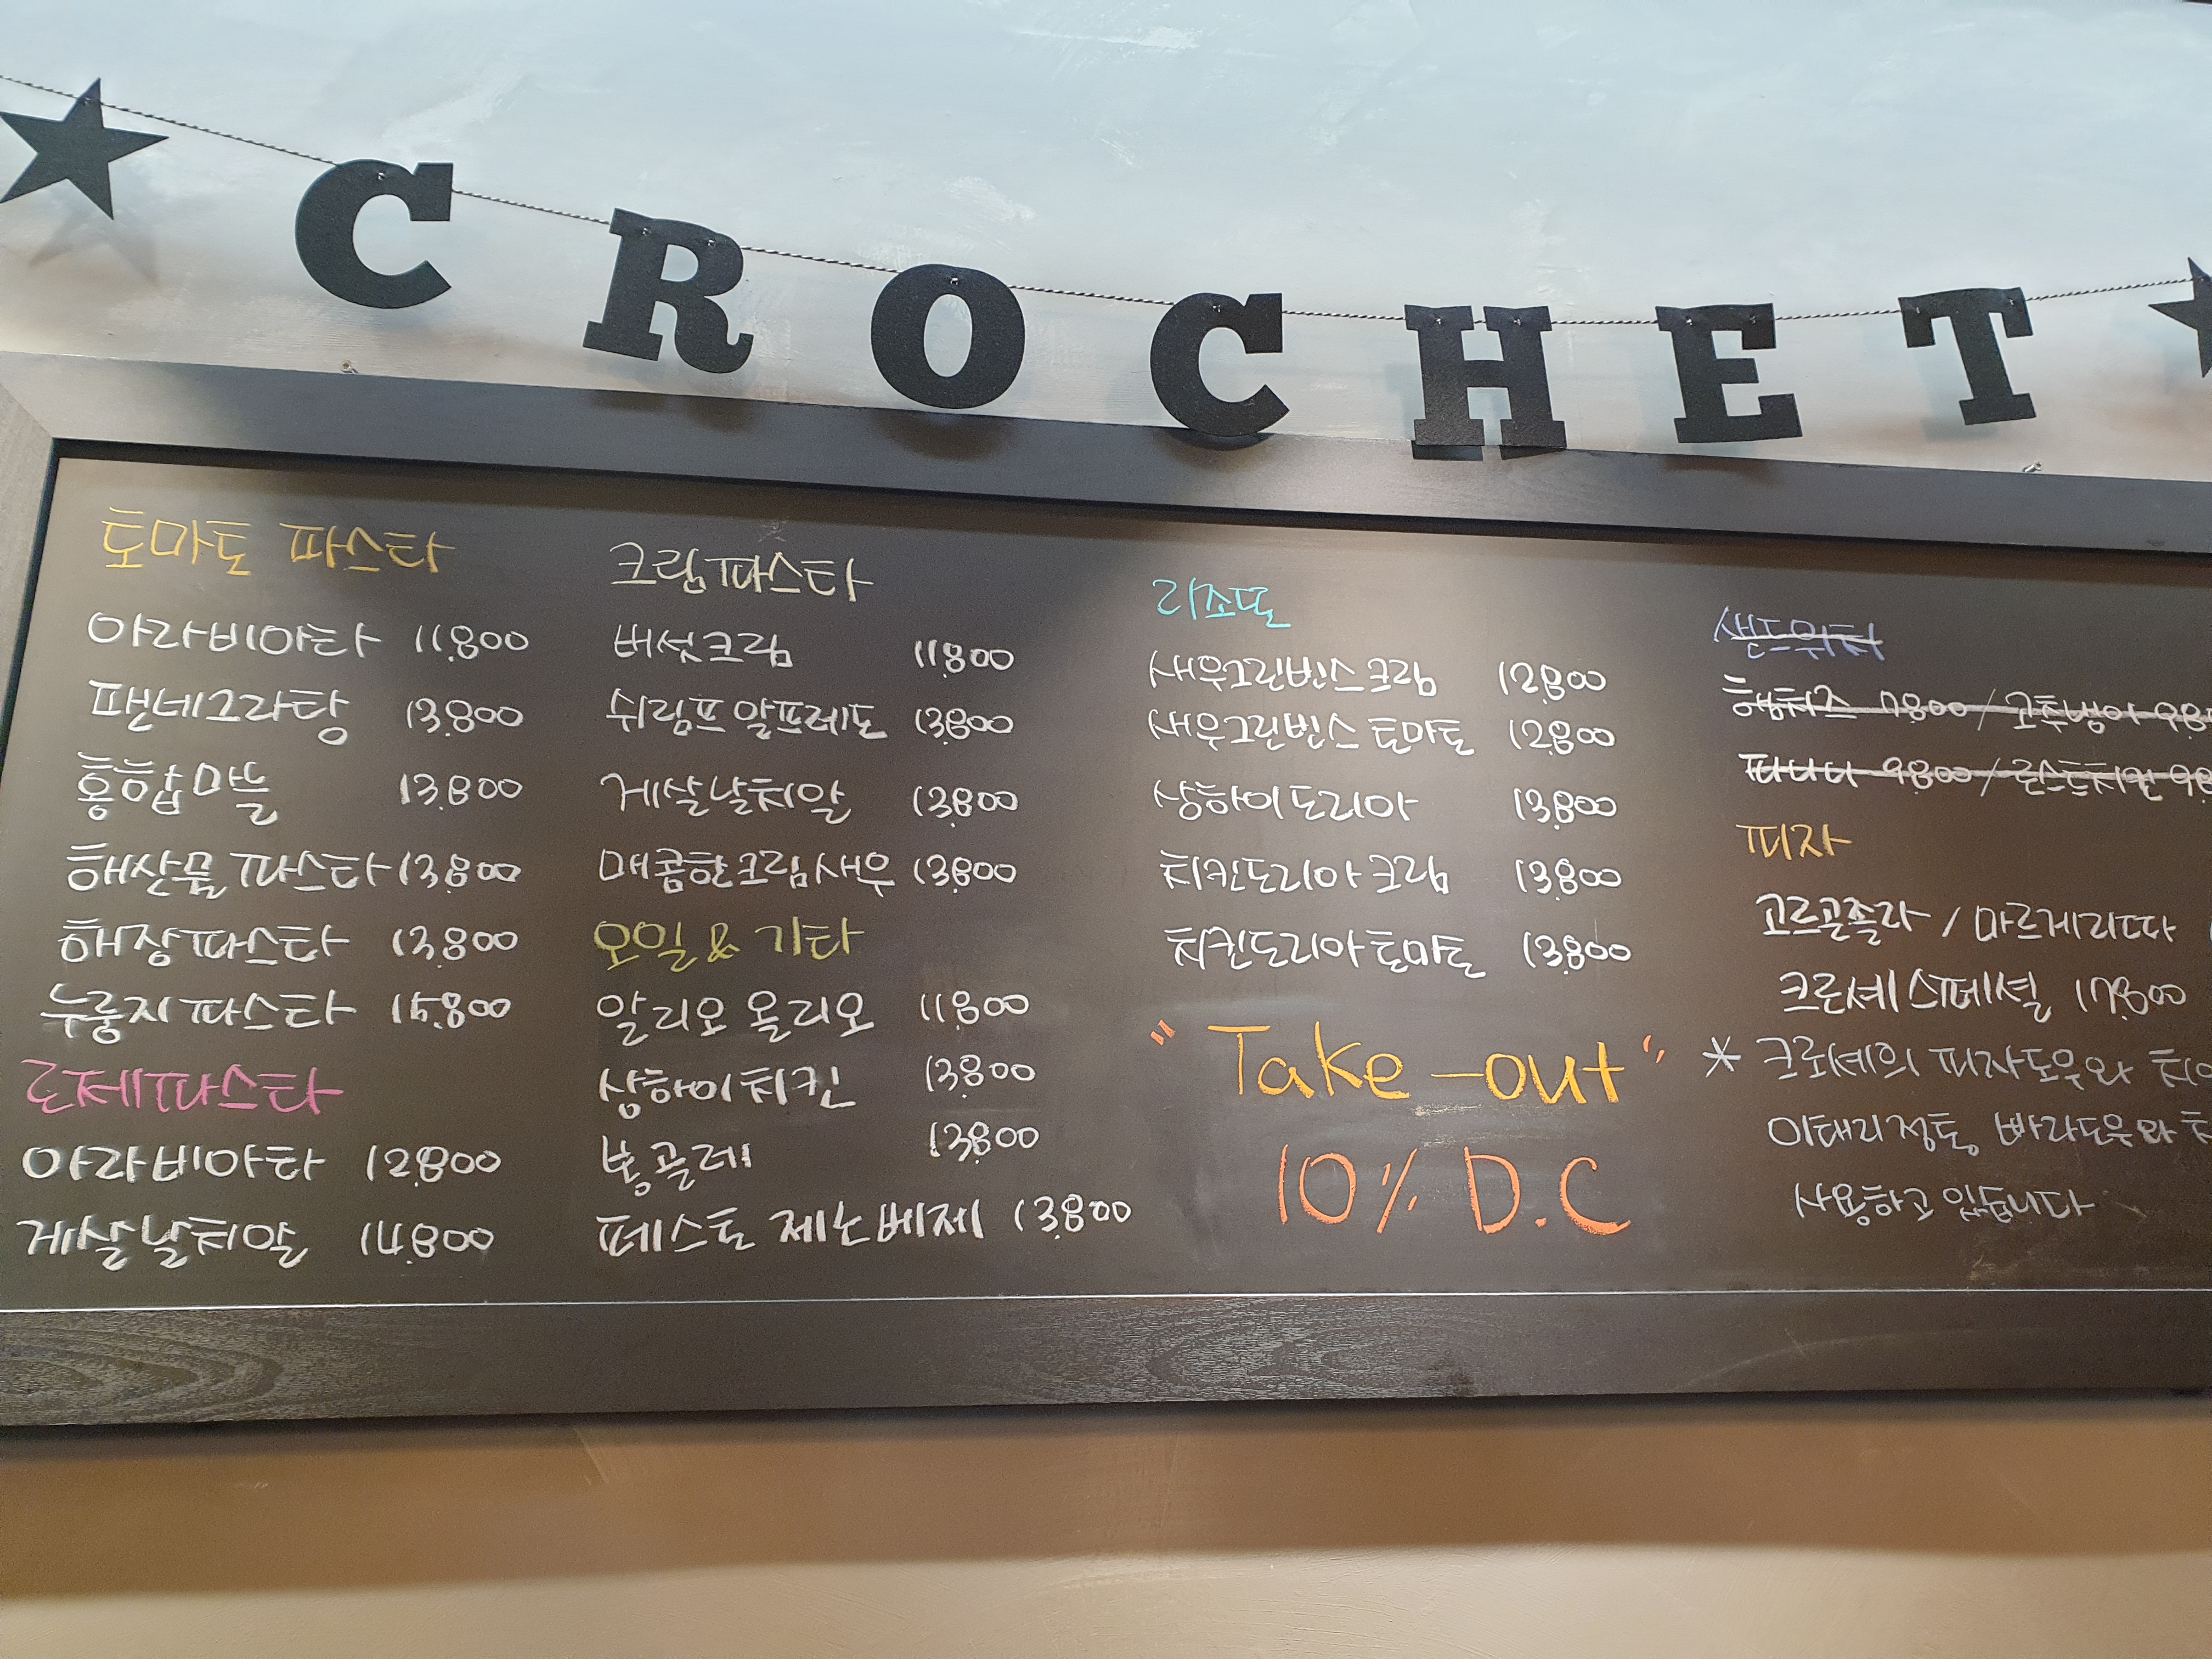 CROCHET
토마토 파스타
아라비아타 11.800
팬네그라탕 13.800
홍합마뜰 13.800
해산물 파스타 13.800
해장파스타 13.800
누룽지 파스타 15.800
로제파스타
아라비아타 12.800
게살날치알 14.800
크림파스타
버섯크림 11.800
쉬림프 알프레도 13.800
게살날치알 13.800
매콤한크림새우 13.800
오일 & 기타
알리오 올리오 11.800
상하이치킨 13.800
봉골레 13.800
페스토 제노베제 13.800
리조또
새우그린빈스 크림 12.800
새우그린빈스 토마토 12.800
상하이 도리아 13.800
치킨도리아 크림 13.800
치킨도리아 토마토 13.800
"Take-out"
10% D.C
샌드위치
햄치즈 7.800 / 고추냉이 9.8
파니니 9.800 / 로스트치킨 9.8
피자
고르곤졸라 / 마르게리따
크로셰 스페셜 17.800
* 크로셰의 피자도우와
이태리 정통 빠라도우와
사용하고 있습니다